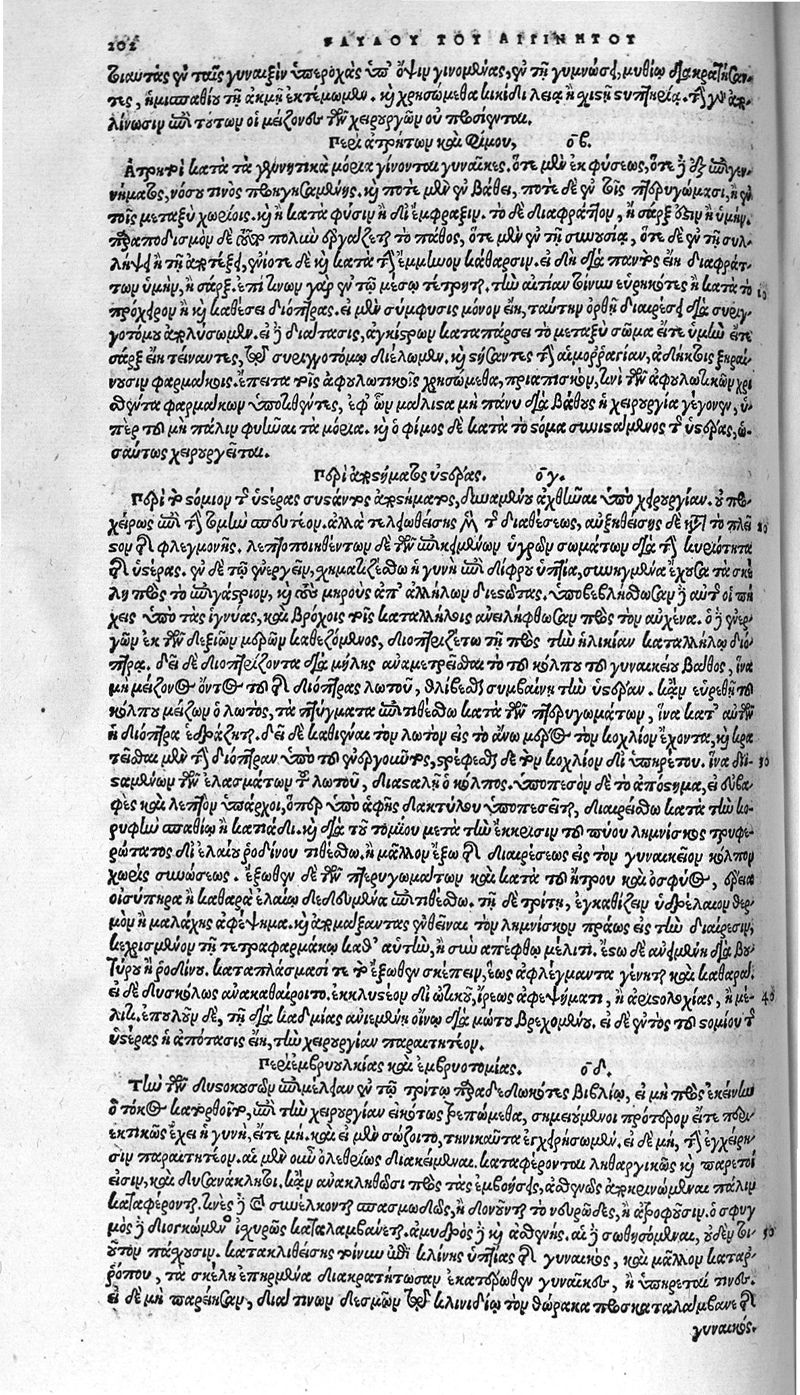 202 ΠΑΥΛΟΥ ΤΟΥ ΑΙΓΙΝΗΤΟΥ
τιαύτας ἐν ταῖς γυναιξὶν ὑπεροχὰς ὑπ' ὄψιν γινομένας, ἐν τῇ γυμνώσει, μυδίῳ διακρατήσαν-
τες, ἡμισπαθίου τῇ ἀκμῇ ἐκτέμωμεν. καὶ χρησώμεθα κικίδι λείᾳ ἢ χιστῇ στυπτηρίᾳ. τὴν γὰρ
λίνωσιν ἐπὶ τούτων οἱ μείζονες τῶν χειρουργῶν οὐ προσίενται.
Περὶ ἀτρήτων καὶ φίμου, οβ.
Ἄτρητοι κατὰ τὰ γεννητικὰ μόρια γίνονται γυναῖκες. ὅτε μὲν ἐκ φύσεως, ὅτε δὲ ἐξ ἐπιγεν-
νήματος, νόσου τινὸς προηγησαμένης. καὶ ποτὲ μὲν ἐν βάθει, ποτὲ δὲ ἐν τοῖς πτερυγώμασι, ἢ ἐν
τοῖς μεταξὺ χωρίοις. καὶ ἢ κατὰ φύσιν ἢ δι' ἔμφραξιν. τὸ δὲ διαφράττον, ἢ σάρξ ἐστιν ἢ ὑμήν.
παραποδισμὸν δὲ οὐ πολὺν ἐργάζεται τὸ πάθος, ὅτε μὲν ἐν τῇ συνουσίᾳ, ὅτε δὲ ἐν τῇ συλ-
λήψει ἢ τῇ ἀποτέξει, ἐνίοτε δὲ καὶ κατὰ τὴν ἔμμηνον κάθαρσιν. εἰ δὴ διὰ παντὸς εἴη διαφράτ-
των ὑμὴν, ἢ σάρξ. ἐπ' ἐνίων γὰρ ἐν τῷ μέσῳ τέτρηται. τὴν αἰτίαν τοίνυν εὑρηκότες ἢ κατὰ τὸ 10
πρόχειρον ἢ καὶ καθέσει διόπτρας. εἰ μὲν σύμφυσις μόνον εἴη, ταύτην ὀρθῇ διαιρέσει διὰ συριγ-
γοτόμου ἀπολύσωμεν. εἰ δὲ διάστασις, ἀγκίστρῳ καταπάρσει τὸ μεταξὺ σῶμα εἴτε ὑμὴν εἴτε
σὰρξ εἴη τείναντες, τῷ συριγγοτόμῳ διέλωμεν. καὶ στήσαντες τὴν αἱμορραγίαν, ἀδήκτοις ξηραί-
νουσιν φαρμάκοις. ἔπειτα τοῖς ἀφουλωτικοῖς χρησώμεθα, πριαπισκὸν, τινὶ τῶν ἀφουλωτικῶν χρι
σθέντα φαρμάκων ὑποτιθέντες, ἐφ' ὧν μάλιστα μὴ πάνυ διὰ βάθους ἡ χειρουργία γέγονεν, ὑ-
πὲρ τοῦ μὴ πάλιν φυῆναι τὰ μόρια. καὶ ὁ φίμος δὲ κατὰ τὸ στόμα συνιστάμενος τῆς ὑστέρας, ὡ-
σαύτως χειρουργεῖται.
Περὶ ἀποστήματος ὑστέρας. ογ.
Περὶ τὸ στόμιον τῆς ὑστέρας συστάντος ἀποστήματος, δυναμένου ἀχθῆναι ὑπὸ χειρουργίαν. οὐ προ-
χείρως ἐπὶ τὴν τομὴν σπευστέον. ἀλλὰ τελειωθείσης μὲν τῆς διαθέσεως, αὐξηθείσης δὲ κατὰ τὸ πλεῖ 20
στον τῆς φλεγμονῆς. λεπτοποιηθέντων δὲ τῶν ἐπικειμένων ὑγρῶν σωμάτων διὰ τὴν κυριότητα
τῆς ὑστέρας. ἐν δὲ τῷ ἐνεργεῖν, σχηματιζέσθω ἡ γυνὴ ἐπὶ δίφρου ὑπτία, συνηγμένα ἔχουσα τὰ σκέ
λη πρὸς τὸ ἐπιγάστριον, καὶ τοὺς μηροὺς ἀπ' ἀλλήλων διεστῶτας. ὑποβεβλήσθωσαν δὲ αὐτῆς οἱ πή
χεις ὑπὸ τὰς ἰγνύας, καὶ βρόχοις τοῖς καταλλήλοις ἀνειλήφθωσαν πρὸς τὸν αὐχένα. ὁ δὲ ἐνερ-
γῶν ἐκ τῶν δεξιῶν μερῶν καθεζόμενος, διοπτριζέτω τῇ πρὸς τὴν ἡλικίαν καταλλήλῳ διό-
πτρᾳ. δεῖ δὲ διοπτρίζοντα διὰ μήλης ἀναμετρεῖσθαι τὸ τοῦ κόλπου τοῦ γυναικείου βάθος, ἵνα
μὴ μείζονος ὄντος τοῦ τῆς διόπτρας λωτοῦ, θλίβεσθαι συμβαίνῃ τὴν ὑστέραν. κἂν εὑρεθῇ τοῦ
κόλπου μείζων ὁ λωτὸς, τὰ πτύγματα ἐπιτιθέσθω κατὰ τῶν πτερυγωμάτων, ἵνα κατ' αὐτῶν
ἡ διόπτρα ἑδράζηται. δεῖ δὲ καθιέναι τὸν λωτὸν εἰς τὸ ἄνω μέρος τὸν κοχλίον ἔχοντα, καὶ κρα
τεῖσθαι μὲν τὴν διόπτραν ὑπὸ τοῦ ἐνεργοῦντος, στρέφεσθαι δὲ τὸν κοχλίον δι' ὑπηρέτου. ἵνα δι- 30
σταμένων τῶν ἐλασμάτων τοῦ λωτοῦ, διασταλῇ ὁ κόλπος. ὑποπεσὸν δὲ τὸ ἀπόστημα, εἰ εὐα-
φὲς καὶ λεπτὸν ὑπάρχοι, ὅπερ ὑπὸ ἁφῆς δακτύλου ὑποπεσεῖται, διαιρείσθω κατὰ τὴν κο-
ρυφὴν σπαθίῳ ἢ κατιάδι. καὶ διὰ τοῦ τομίου μετὰ τὴν ἔκκρισιν τοῦ πύου λημνίσκος τρυφε-
ρώτατος δι' ἐλαίου ῥοδίνου τιθέσθω. ἢ μᾶλλον ἔξω τῆς διαιρέσεως εἰς τὸν γυναικεῖον κόλπον
χωρὶς συνώσεως. ἔξωθεν δὲ τῶν πτερυγωμάτων καὶ κατὰ τοῦ ἤτρου καὶ ὀσφύος, ἔρεια
οἰσύπηρα ἢ καθαρὰ ἐλαίῳ δεδευμένα ἐπιτιθέσθω. τῇ δὲ τρίτῃ, ἐγκαθίζειν ὑδρέλαιον θερ-
μὸν ἢ μαλάχης ἀφέψημα. καὶ ἀπομάξαντας ἐνθεῖναι τὸν λημνίσκον πράως εἰς τὴν διαίρεσιν,
κεχρισμένον τῇ τετραφαρμάκῳ καθ' αὑτὴν, ἢ σὺν ἀπέφθῳ μέλιτι. ἔστω δὲ ἀνειμένη διὰ βου-
τύρου ἢ ῥοδίνου. καταπλάσμασί τε τὸ ἔξωθεν σκέπειν, ἕως ἀφλέγμαντα γένηται καὶ καθαρά.
εἰ δὲ δυσκόλως ἀνακαθαίροιτο, ἐκκλυστέον δι' ὠτικοῦ, ἴρεως ἀφεψήματι, ἢ ἀριστολοχίας, ἢ μέ- 40
λιτι. ἐπουλοῦν δὲ, τῇ διὰ καδμίας ἀνιεμένῃ οἴνῳ διὰ μοτοῦ βρεχομένου. εἰ δὲ ἐντὸς τοῦ στομίου τῆς
ὑστέρας ἡ ἀπόστασις εἴη, τὴν χειρουργίαν παραιτητέον.
Περὶ ἐμβρυουλκίας καὶ ἐμβρυοτομίας. οδ.
Τὴν τῶν δυστοκουσῶν ἐπιμέλειαν ἐν τῷ τρίτῳ παραδεδωκότες βιβλίῳ, εἰ μὴ πρὸς ἐκείνην
ὁ τόκος κατορθοῖτο, ἐπὶ τὴν χειρουργίαν εἰκότως τρεπώμεθα, σημειούμενοι πρότερον εἴτε περιε-
κτικῶς ἔχει ἡ γυνὴ, εἴτε μή. καὶ εἰ μὲν σώζοιτο, τηνικαῦτα ἐγχειρήσωμεν. εἰ δὲ μὴ, τὴν ἐγχείρη-
σιν παραιτητέον. αἱ μὲν οὖν ὀλεθρίως διακείμεναι. καταφέρονται ληθαργικῶς καὶ πάρετοί
εἰσιν, καὶ δυσανάκλητοι. κἂν ἀνακληθῶσι πρὸς τὰς ἐμβοήσεις, ἀσθενῶς ἀποκρινόμεναι πάλιν
καταφέρονται. τινὲς δὲ καὶ συνέλκονται σπασμωδῶς, ἢ δονοῦνται τὸ νευρῶδες, ἢ ἀτροφοῦσιν. ὁ σφυγ
μὸς δὲ διογκώμενος ἰσχυρῶς καταλαμβάνεται. ἀμυδρὸς δὲ καὶ ἀσθενής. αἱ δὲ σωθησόμεναι, οὐδὲν τοι- 50
οῦτον πάσχουσιν. κατακλιθείσης τοίνυν ἐπὶ κλίνης ὑπτίας τῆς γυναικὸς, καὶ μᾶλλον καταρ-
ρόπου, τὰ σκέλη ἐπηρμένα διακρατήτωσαν ἑκατέρωθεν γυναῖκες, ἢ ὑπηρέται τινές.
εἰ δὲ μὴ παρείησαν, διά τινων δεσμῶν τῷ κλινιδίῳ τὸν θώρακα προσκαταλαμβάνειν τῆς
γυναικός.